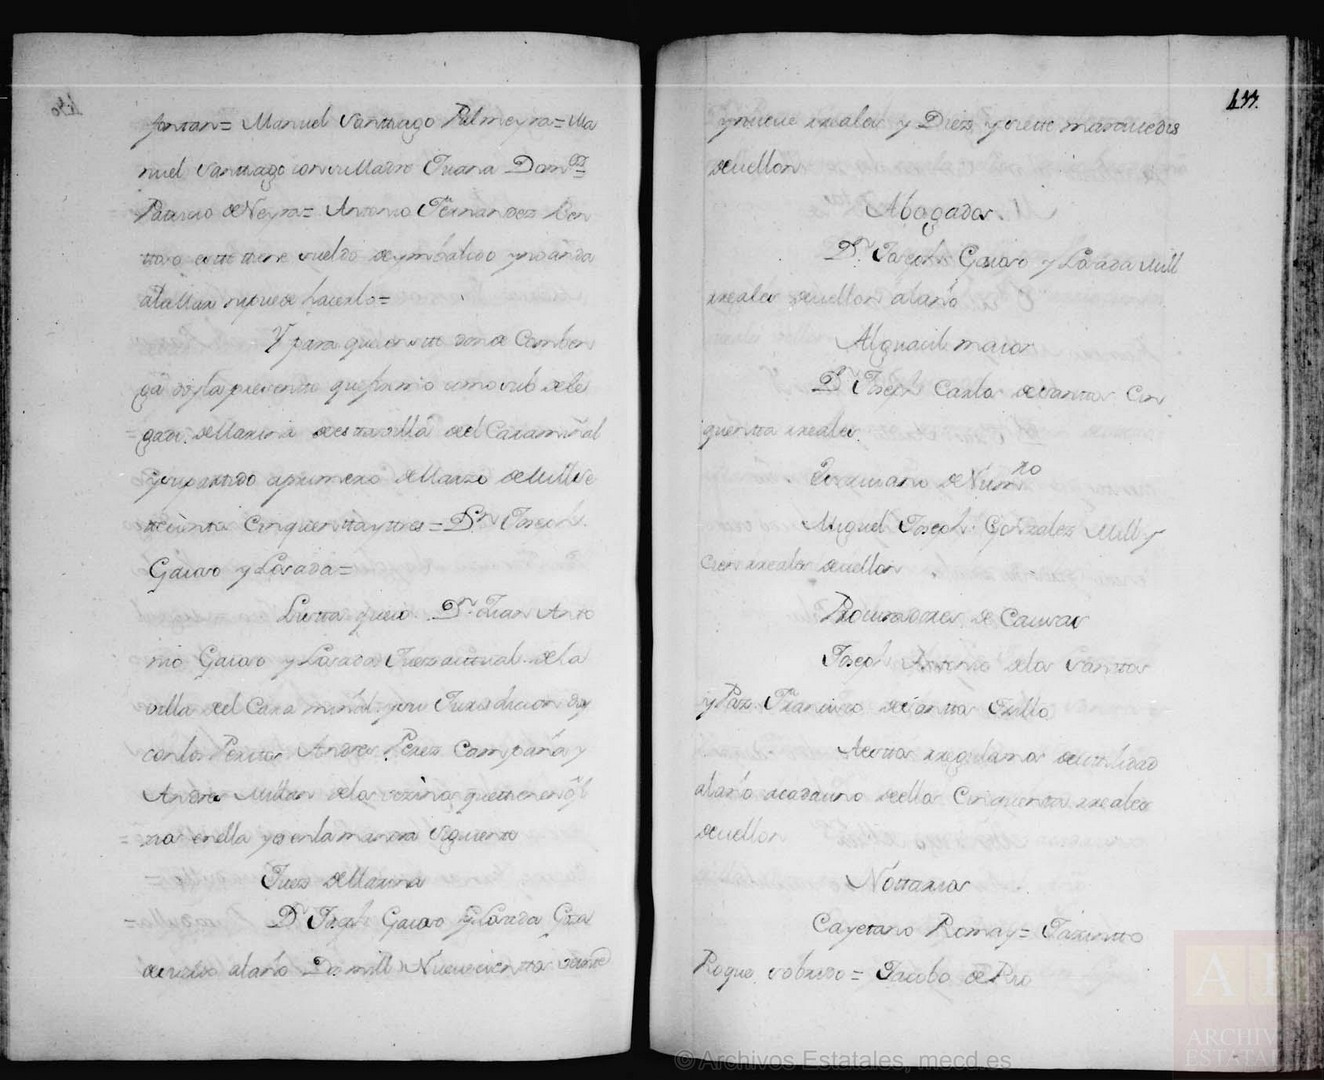 fontan= Manuel Santtiago Palmeyra= Ma
nuel Santtiago con su Madre Juana Domgz=
Patricio de Neyra= Antonio Fernandez Ben
tturo este ttiene sueldo de ymbalido y no anda
ala Mar ni puede hacerlo=
Y para que en este donde Comben
ga doy la presente que firmo como sub dele
gado de Marina de esta villa del Caramiñal
y su partido a primero de Marzo de Mill se
ttecientos Cinquentta y tres= Dn Joseph
Gaioso y Losada=
Listta que io Dn Juan Anto
nio Gaioso y Losada Juez acttual de la
villa del Caramiñal y su Jurisdicion doy
con los Peritos Andres Perez Campaña y
Andres Millan de los vezinos que ttienen
en ella y es en la manera siguiente
Juez de Marina
Dn Joseph Gaioso y Losada Goza
de sueldo al año Dos mill Nuevecienttos
433.
y nueve reales y Diez y siette maravedis
de vellon
Abogados.
Dn Joseph Gaioso y Losada Mill
reales de vellon al año
Alguacil maior
Dn Joseph Carlos de Santtos Cin
quentta reales.
Escrivano de Numro
Miguel Joseph Gonzalez Mill y
Cien reales de vellon
Procuradores de Causas
Joseph Antonio de los Santtos
y Paz Francisco de Santtos Trillo
A esttos regulamos de uttilidad
al año a cada uno de ellos Cinquentta reales
de vellon
Nottarios
Cayetano Romay= Jazintto
Roque sobrido= Jacobo de Rio
© Archivos Estatales, mecd.es
ARCHIV
ESTATA